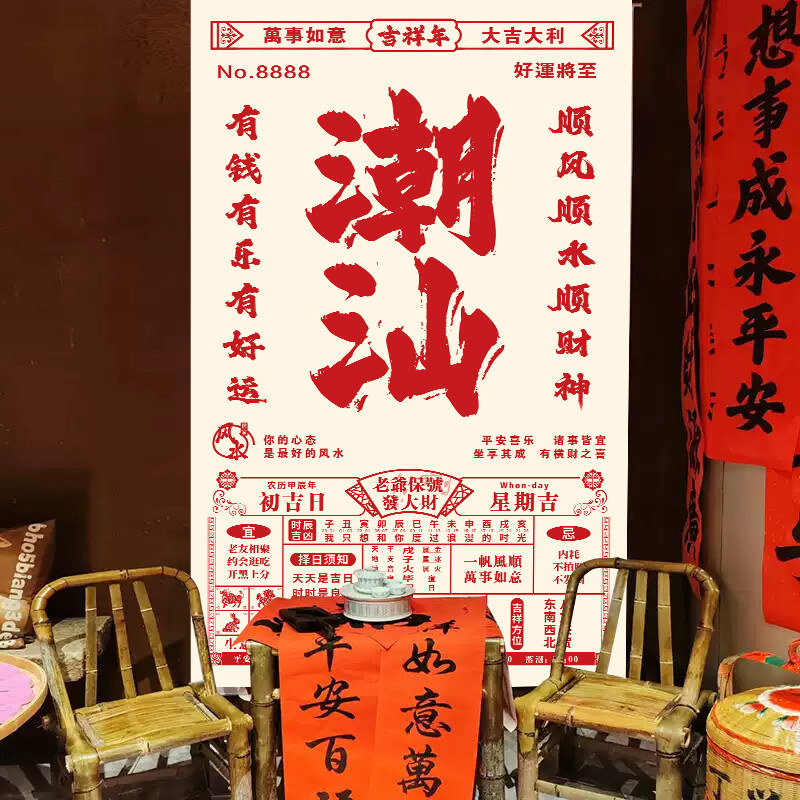 萬事如意
吉祥年
大吉大利
No.8888
好運將至
有钱有乐有好运
潮汕
顺风顺水顺财神
风水
你的心态
是最好的风水
平安喜乐 诸事皆宜
坐享其成 有横财之喜
农历甲辰年
初吉日
老爺保號
發大財
Whon-day
星期吉
宜
老友相聚
约会逛吃
开黑上分
时辰
吉凶
子丑寅卯辰巳午未申酉戌亥
我只想和你度过浪漫的时光
择日须知
天天是吉日
时时是良
一帆風順
萬事如意
忌
内耗
不拍照
吉祥方位
东
南
西
北
想事成永平安
平安百
如意萬
bhosbiang3deb